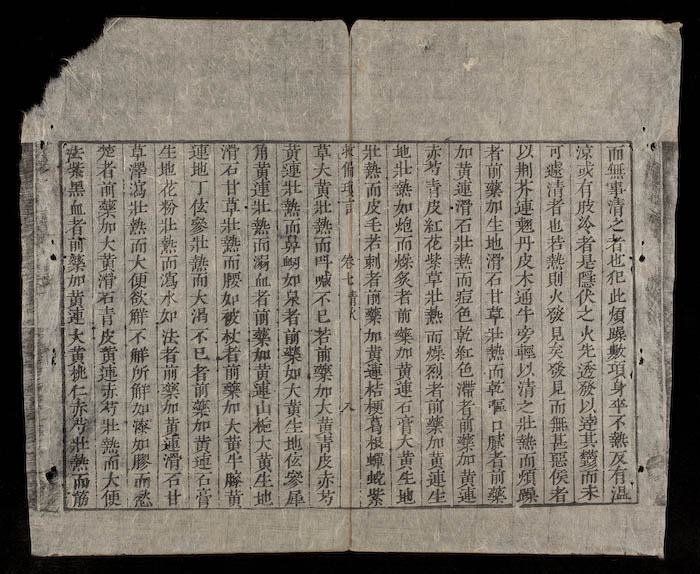 而無事清之者也犯此煩躁數項身卒不熱反有溫
涼或有肢冷者是隱伏之火先透發以達其鬱而未
可遽清者也若熱則火發見矣發見而無甚惡候者
以荆芥連翹丹皮木通牛旁輕以清之壯熱而煩躁
者前藥加生地滑石甘草壯熱而乾嘔口臟者前藥
加黃連滑石壯熱而痘色乾紅色滯者前藥加黃連
赤芍青皮紅花紫草壯熱而燥烈者前藥加黃連生
地壯熱如炮而燥炙者前藥加黃連石膏大黃生地
壯熱而皮毛若刺者前藥加黃連桔梗葛根蟬蛻紫
救偏瑣言 卷七清火 八
草大黃壯熱而呌喊不已若前藥加大黃青皮赤芍
黃連壯熱而鼻衂如泉者前藥加大黃生地伭參犀
角黃連壯熱而溺血者前藥加黃連山梔大黃生地
滑石甘草壯熱而腰如被杖者前藥加大黃牛膝黃
連地丁伭參壯熱而大渴不已者前藥加黃連石膏
生地花粉壯熱而瀉水如法者前藥加黃連滑石甘
草澤瀉壯熱而大便欲解不解所解如漆如膠而愁
楚者前藥加大黃滑石青皮黃連赤芍壯熱而大便
法紫黑血者前藥加黃連大黃桃仁赤芍壯熱而筋